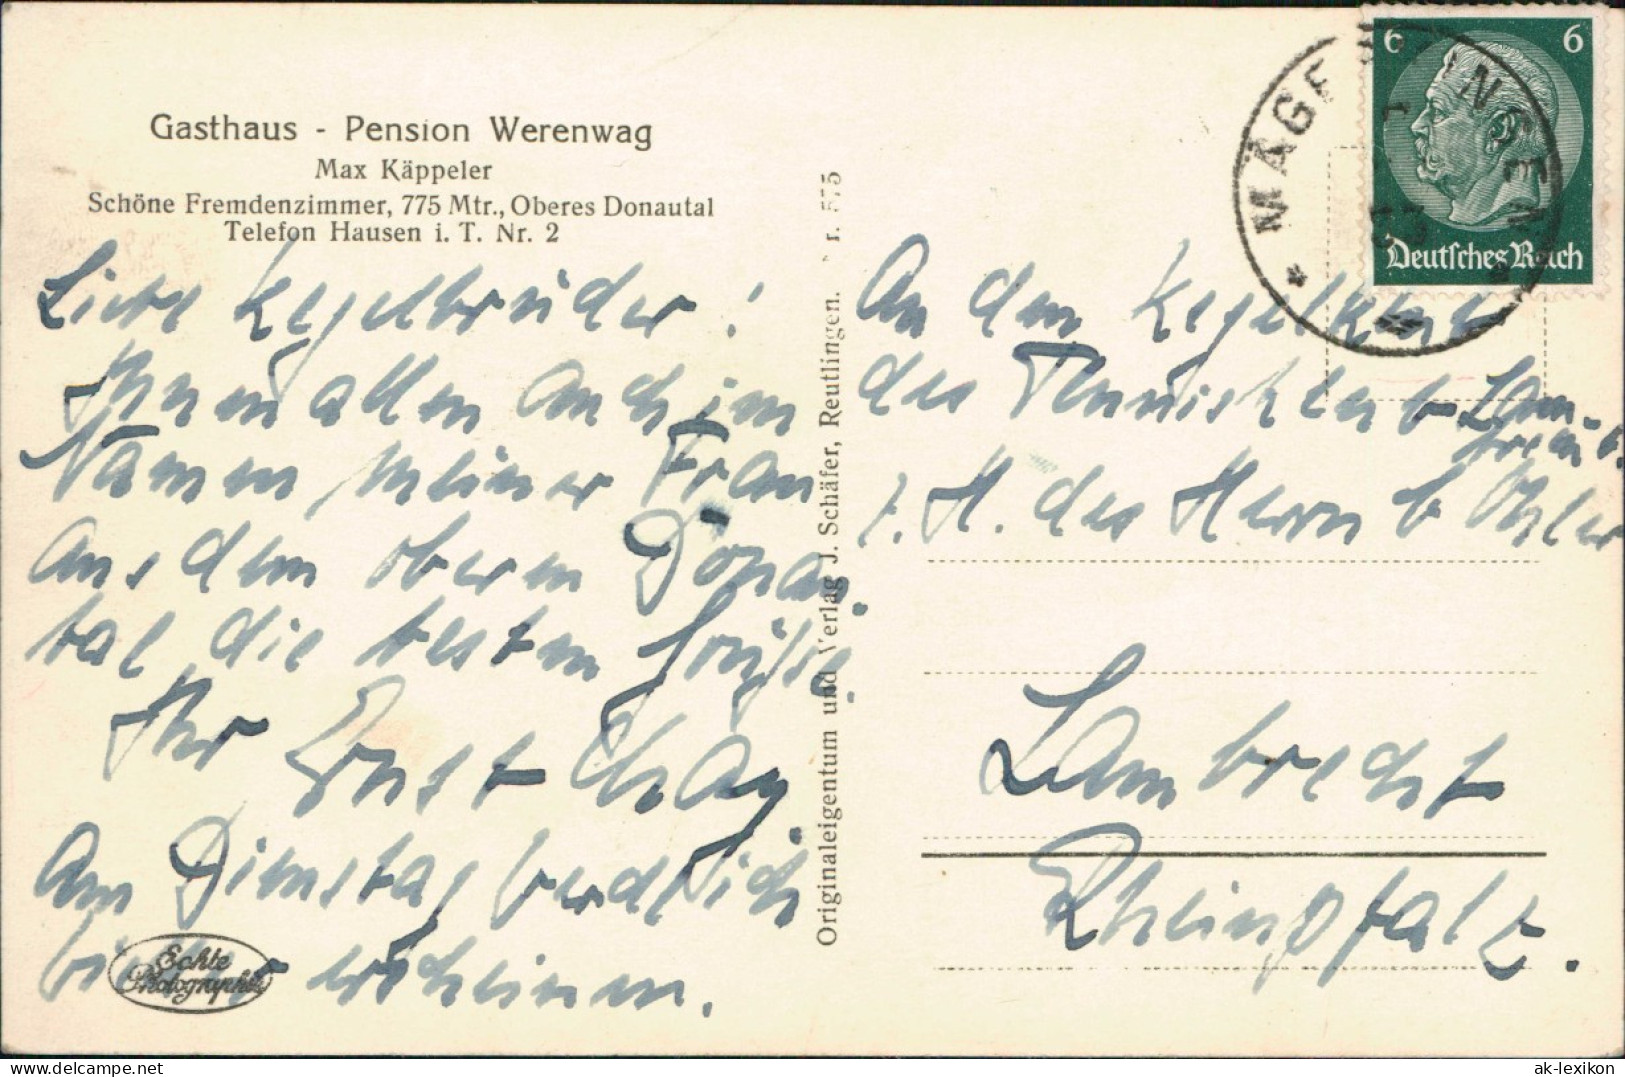 Gasthaus - Pension Werenwag
Max Käppeler
Schöne Fremdenzimmer, 775 Mtr., Oberes Donautal
Telefon Hausen i. T. Nr. 2
Liebe Kegelbrüder!
Ihnen allen auch im
Namen meiner Frau
aus dem oberen Donau-
tal die besten Grüsse.
Ihr Ernst
Am Dienstag
bitte erscheinen.
Echte
Photographie
Originaleigentum und Verlag J. Schäfer, Reutlingen. Nr. 575
MÄGERKINGEN
6 6
Deutsches Reich
An den Kegelklub
des Tennisklub Lam-
z. H. des Herrn Öhler
Lambrecht
Rheinpfalz.
delcampe.net
ak-lexikon